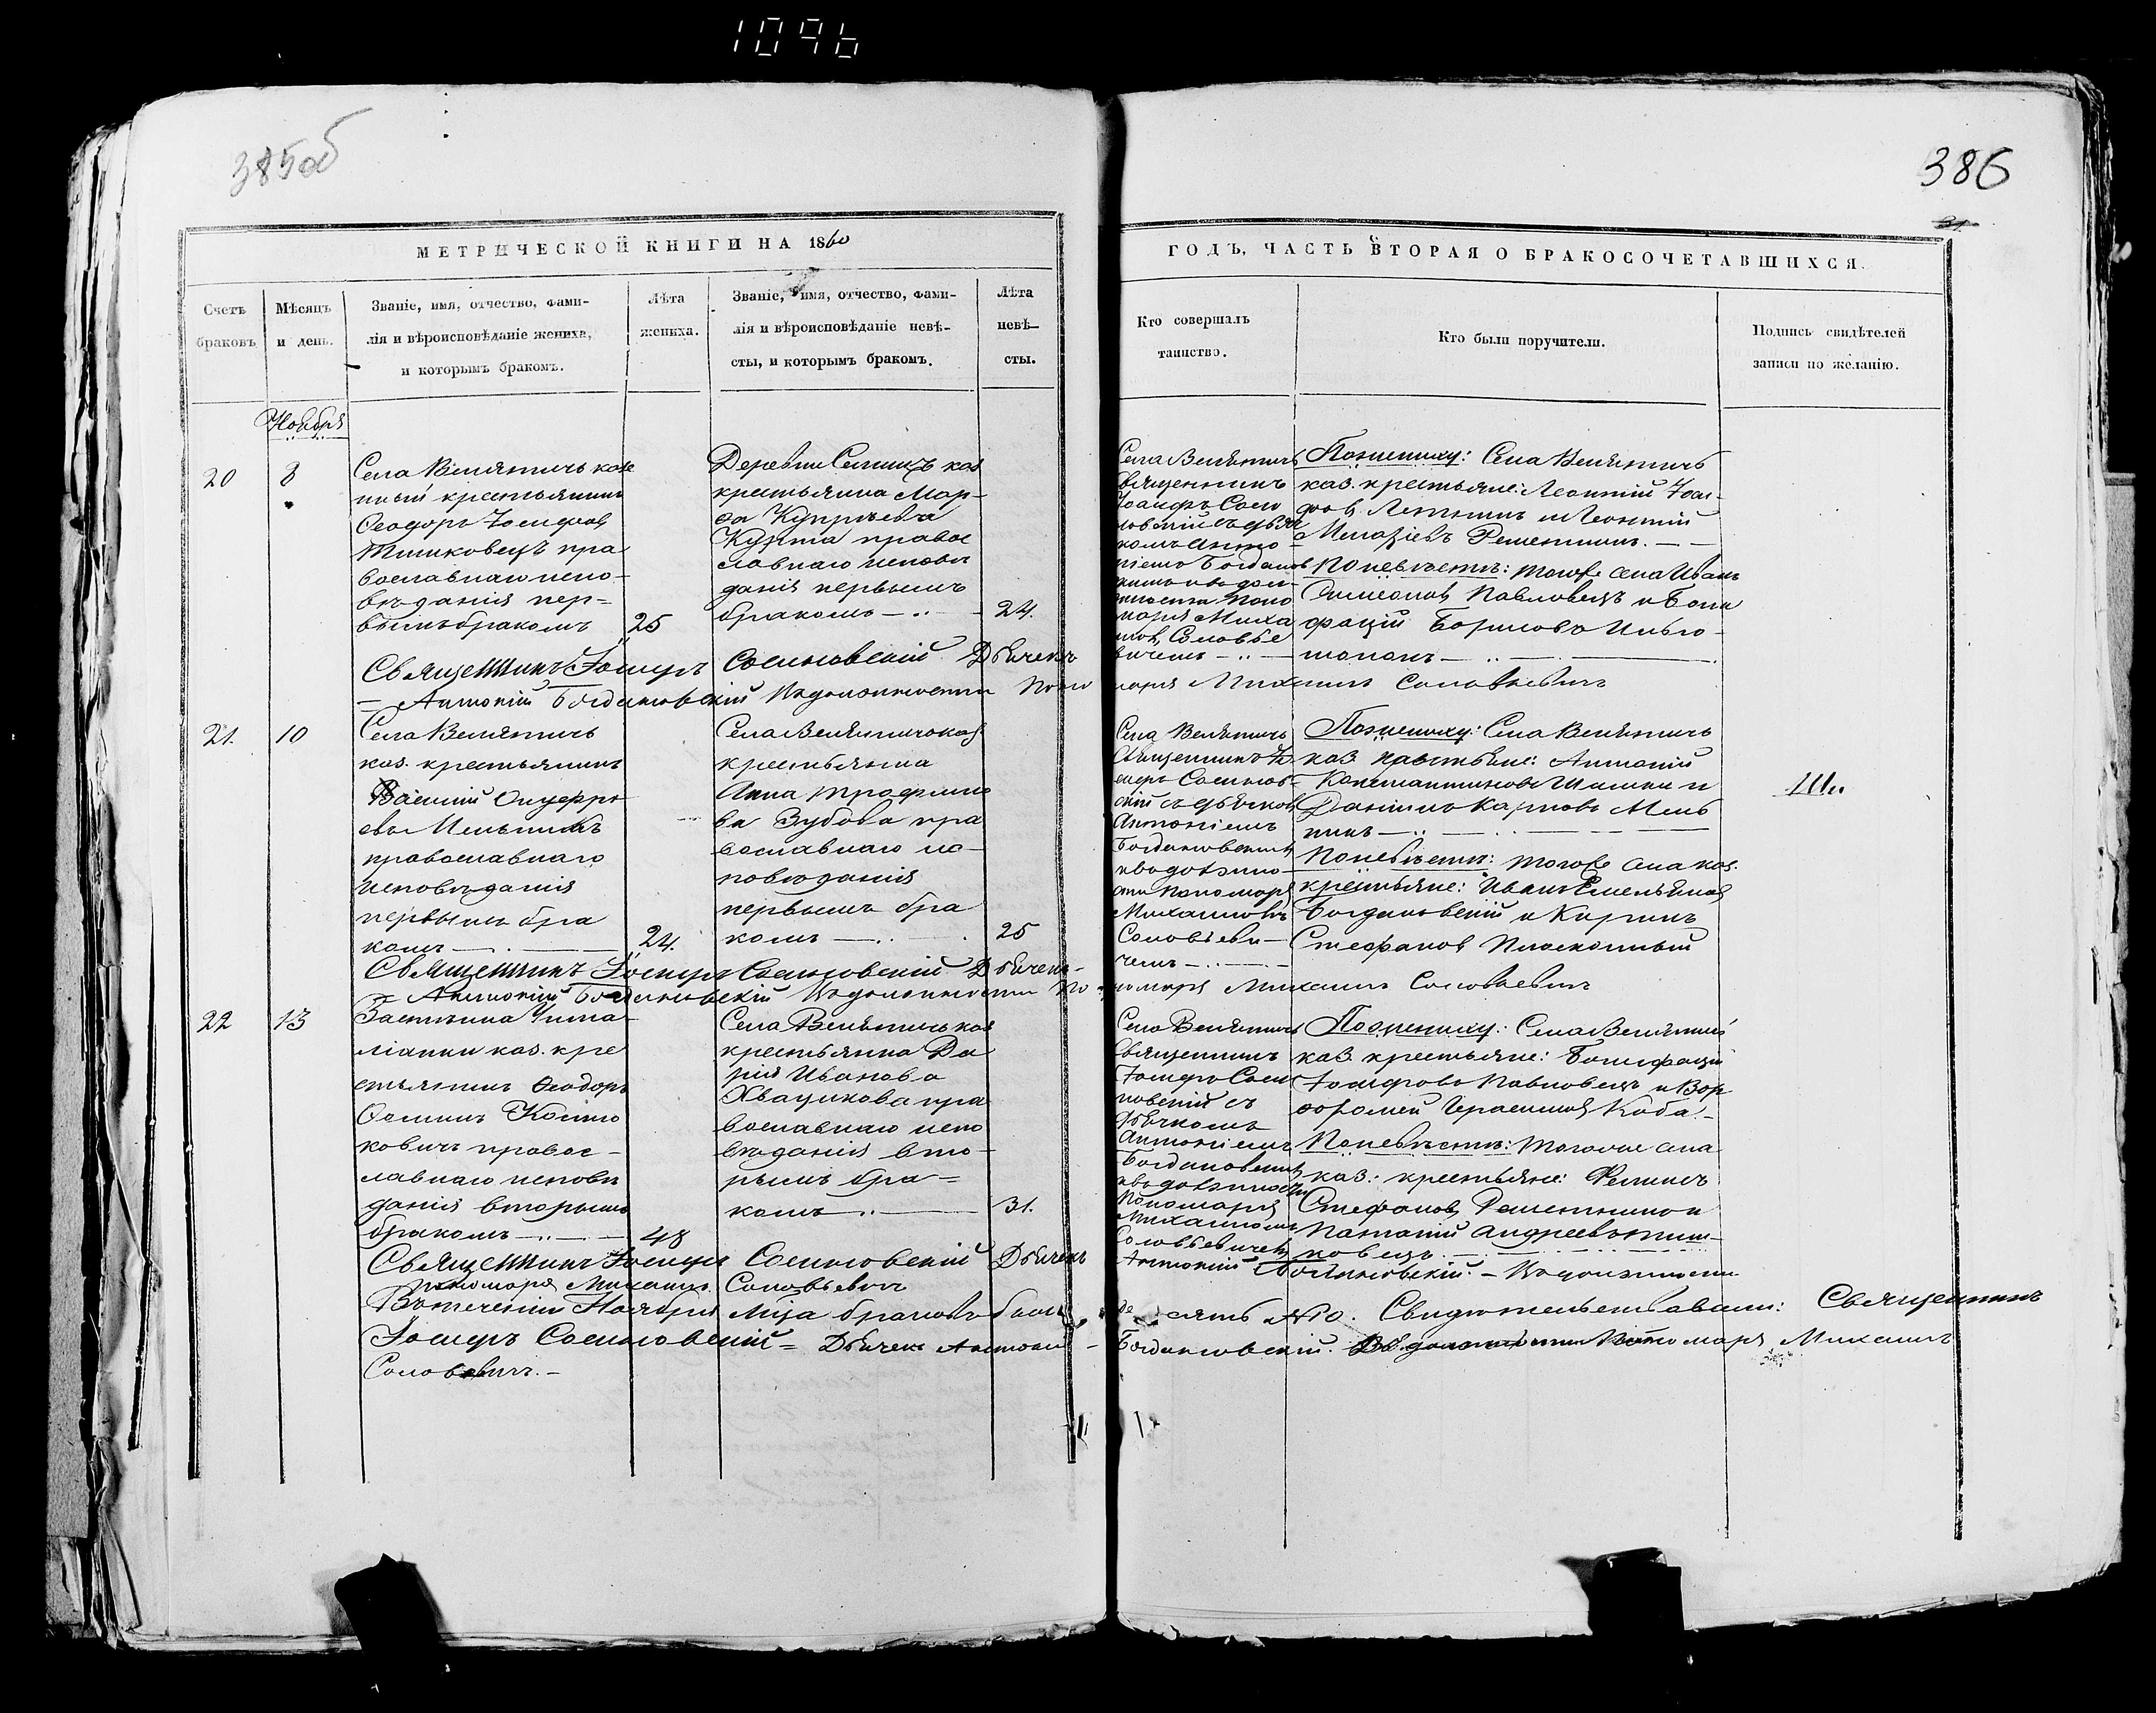 1096
385об
386
31.
МЕТРИЧЕСКОЙ КНИГИ НА 1860
ГОДЪ, ЧАСТЬ ВТОРАЯ О БРАКОСОЧЕТАВШИХСЯ.
Счетъ
браковъ
Мѣсяцъ
и день.
Званіе, имя, отчество, фами-
лія и вѣроисповѣданіе жениха,
и которымъ бракомъ.
Лѣта
жениха.
Званіе, имя, отчество, фами-
лія и вѣроисповѣданіе невѣ-
сты, и которымъ бракомъ.
Лѣта
невѣ-
сты.
Кто совершалъ
таинство.
Кто были поручители.
Подпись свидѣтелей
записи по желанію.
Ноября
20
8
Села Велятичь казе
нный крестьянинъ
Ѳеодоръ Іосифов
Тишковецъ пра
вославнаго испо-
вѣданія пер-
вымъ бракомъ
25
Деревни каз
крестьянка Мар-
ѳа
правос
лавнаго исповѣ
данія первымъ
бракомъ
24.
Села Велятичь
Священникъ
Іосифъ Соси
новскій съ дьяч
комъ Анто-
ніемъ Богданов
мъ и въ дол-
жности поно
маря Миха
иломъ Соловье
вичемъ
По женихѣ: Села Велятичь
каз. крестьяне: Леонтій Іоси-
фов и Леонтій
По невѣстѣ: того же села Иванъ
Симеонов Павловецъ и Бони
фацій Борисовъ
Священникъ Іосифъ Сосиновскій Дьячекъ
Антоній Богдановскій В должности поно
маря Михаилъ Соловьевичъ
21.
10
Села Велятичь
каз. крестьянинъ
Василій Онуфрі
евъ Мельникъ
православнаго
исповѣданія
первымъ бра
комъ
24.
Села Велятичь каз
крестьянка
Анна Трофимо
ва Зубова пра
вославнаго ис-
повѣданія
первымъ бра
комъ
25
Села Велятичь
Священникъ Іо
сифъ Сосинов-
скій съ дьячком
Антоніемъ
Богдановским
и в должно-
сти пономаря
Михаиломъ
Соловьеви-
чемъ
По женихѣ: Села Велятичь
каз. крестьяне: Антоній
Константиновъ и
Даніилъ Карповъ Мель
никъ
По невѣстѣ: того же села каз.
крестьяне: Иванъ Емельянов
Богдановскій и Кирилъ
Стефанов
Священникъ Іосифъ Сосиновскій Дьячекъ
Антоній Богдановскій В должности по
номаря Михаилъ Соловьевичъ
22
13
Застѣнка
каз. кре
стьянинъ Ѳеодоръ
Ѳоминъ
ковичъ правос-
лавнаго исповѣ
данія вторымъ
бракомъ
48
Села Велятичь каз
крестьянка Да
рія Иванова
Хващикова пра
вославнаго испо
вѣданія вто-
рымъ бра-
комъ
31.
Села Велятичь
Священникъ
Іосифъ Соси
новскій съ
дьячкомъ
Антоніемъ
Богдановским
и в должности
Пономаря
Михаиломъ
Соловьевичем
По женихѣ: Села Велятичь
каз. крестьяне: Бонифацій
Іосифовъ Павловецъ и Вар-
ѳоломей Герасимов Каба-
По невѣстѣ: того же села
каз. крестьяне:
Стефанов и
Андреевъ Тиш-
ковецъ.
Священникъ Іосифъ Сосиновскій Дьячекъ
Антоній Богдановскій. В должности
пономаря Михаилъ Соловьевичъ
Въ теченіи Ноября мѣсяца браковъ было десять №10. Свидѣтельствовали: Священникъ
Іосифъ Сосиновскій Дьячекъ Антоній Богдановскій. В должности Пономаря Михаилъ
Соловьевичъ.